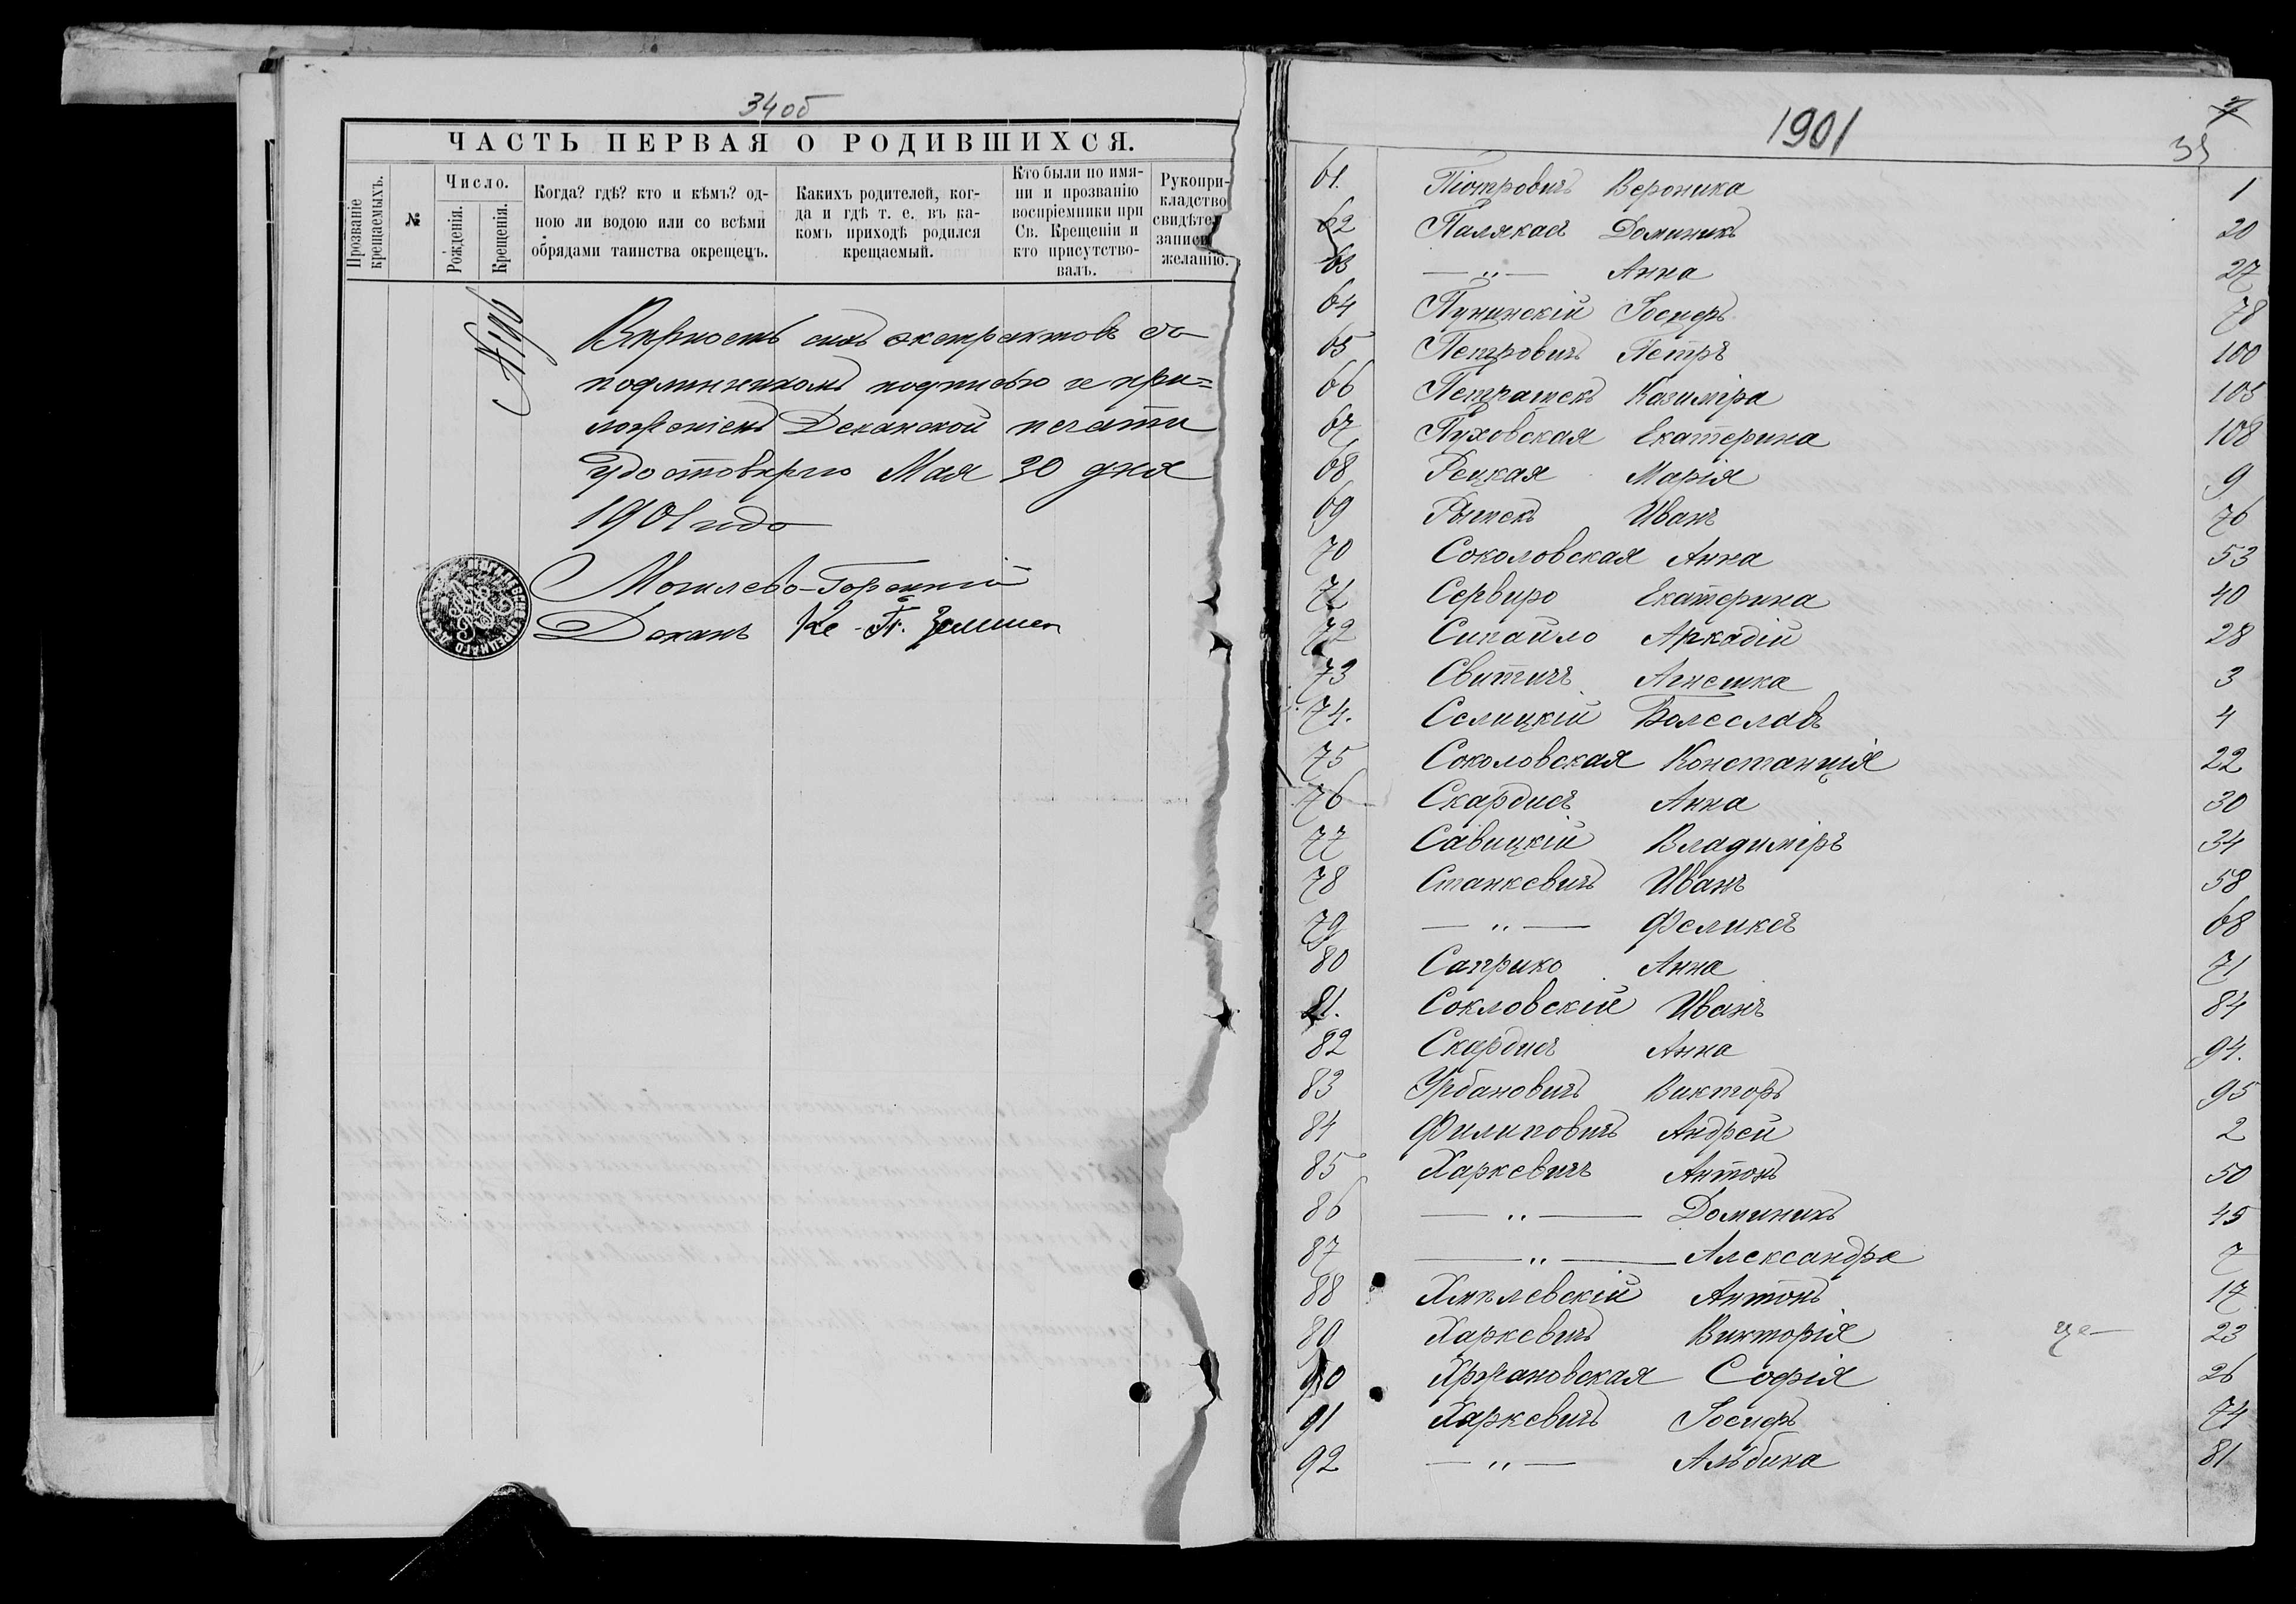 34об
ЧАСТЬ ПЕРВАЯ О РОДИВШИХСЯ.
Прозваніе крещаемыхъ.
№
Число.
Рожденія.
Крещенія.
Когда? гдѣ? кто и кѣмъ? од-
ною ли водою или со всѣми
обрядами таинства окрещенъ.
Какихъ родителей, ког-
да и гдѣ т. е. въ ка-
комъ приходѣ родился
крещаемый.
Кто были по имя-
ни и прозванію
воспріемники при
Св. Крещеніи и
кто присутство-
валъ.
Рукопри-
кладство
свидѣте
записи
желанію.
№196
Вѣрность сихъ экстрактовъ съ
подлинникомъ подписью и при=
ложеніемъ Деканской печати
удостовѣряю Мая 30 дня
1901 года
Могилево-Горецкій
Деканъ Кс.
1901
7
35
61. Піотровичъ Вероника 1
62 Палякасъ Доминикъ 20
63 —„— Анна 27
64 Пунинскій Іосифъ 78
65 Петровичъ Петръ 100
66 Петрашекъ Казиміра 105
67 Пуховская Екатерина 108
68 Рецкая Марія 9
69 Рытекъ Иванъ 76
70 Соколовская Анна 53
71 Сервиро Екатерина 40
72 Сипайло Аркадій 28
73 Свитичъ Агнешка 3
74. Селицкій Болеславъ 4
75 Соколовская Констанція 22
76 Скардисъ Анна 30
77 Савицкій Владиміръ 34
78 Станкевичъ Иванъ 58
79 —„— Феликсъ 68
80 Саприко Анна 71
81. Сокловскій Иванъ 84
82 Скардисъ Анна 94.
83 Урбановичъ Викторъ 95
84 Филиповичъ Андрей 2
85 Харкевичъ Антонъ 50
86 —„— Доминикъ 45
87 —„— Александра 7
88 Хмѣлевскій Антонъ 17
89 Харкевичъ Викторія 23
90 Хржановская Софія 26
91 Харкевичъ Іосифъ 74
92 —„— Альбина 81